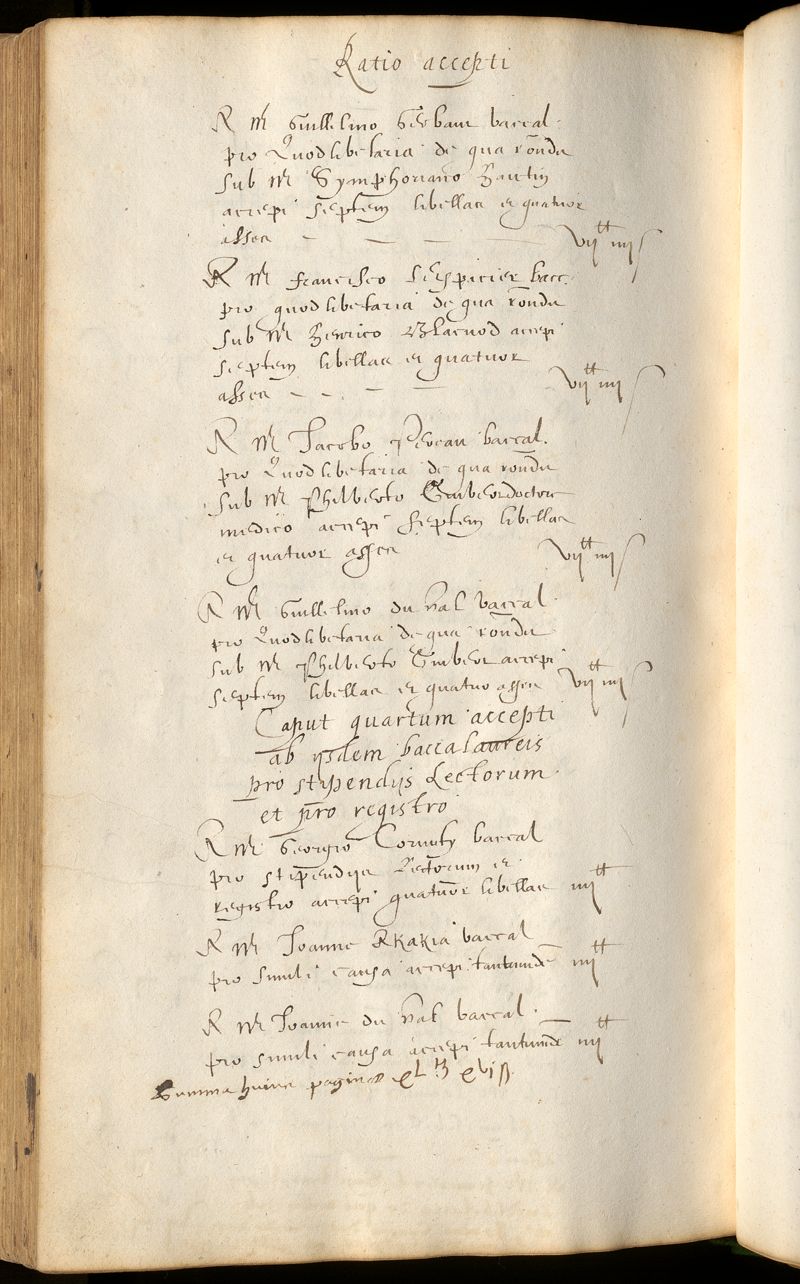 Ratio accepti
A Mr Guillelmo baccal.
pro Quodlibetaria de qua rondit
sub Mr Symphoriano
accepi septem libellas et quatuor
asses viitt iiii s
A Mr Francisco bacc.
pro quodlibetaria de qua rondit
sub Mr Henrico Blacuod accepi
septem libellas et quatuor
asses viitt iiii s
A Mr Jacobo baccal.
pro Quodlibetaria de qua rondit
sub Mr Philberto Guibert doctore
medico accepi septem libellas
et quatuor asses viitt iiii s
A Mr Guillelmo du Val baccal
pro Quodlibetaria de qua rondit
sub Mr Philberto Guibert accepi
septem libellas et quatuor asses viitt iiii s
Caput quartum accepti
ab ijsdem baccalaureis
pro stipendijs Lectorum
et pro registro
A Mr Georgio Cornuty baccal
pro stipendijs Lectorum et
registro accepi quatuor libellas iiiitt
A Mr Joanne Akakia baccal
pro simili causa accepi tantumdē iiiitt
A Mr Joanne du Val baccal.
pro simili causa accepi tantumdē iiiitt
Summa huius paginae xL lt xvi ss.